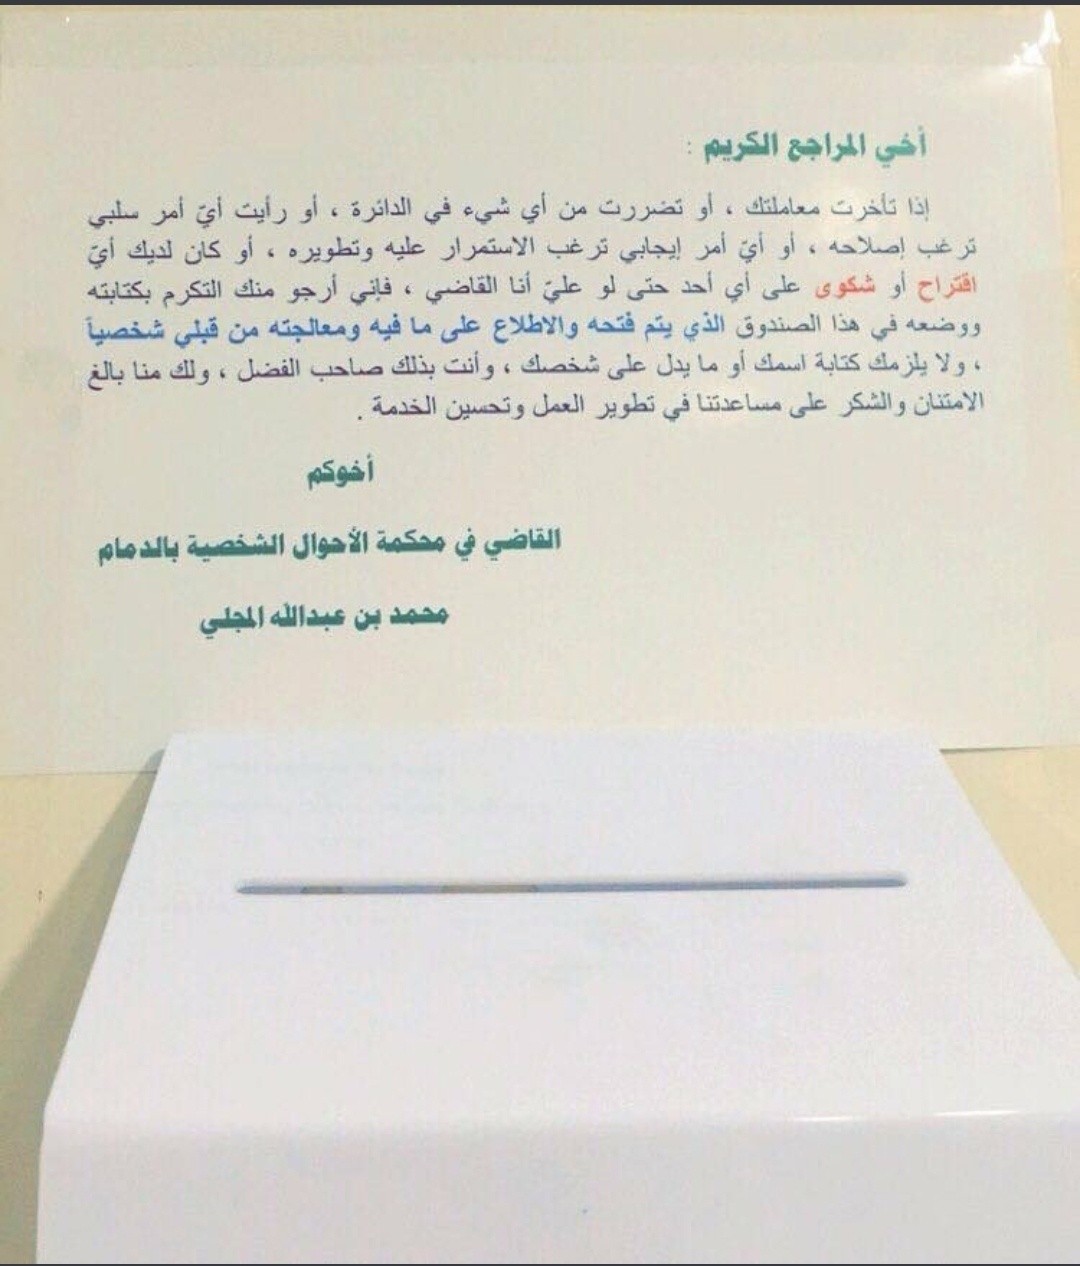 أخي المراجع الكريم :
إذا تأخرت معاملتك ، أو تضررت من أي شيء في الدائرة ، أو رأيت أيّ أمر سلبي
ترغب إصلاحه ، أو أيّ أمر إيجابي ترغب الاستمرار عليه وتطويره ، أو كان لديك أيّ
اقتراح أو شكوى على أي أحد حتى لو عليّ أنا القاضي ، فإني أرجو منك التكرم بكتابته
ووضعه في هذا الصندوق الذي يتم فتحه والاطلاع على ما فيه ومعالجته من قبلي شخصياً
، ولا يلزمك كتابة اسمك أو ما يدل على شخصك ، وأنت بذلك صاحب الفضل ، ولك منا بالغ
الامتنان والشكر على مساعدتنا في تطوير العمل وتحسين الخدمة .
أخوكم
القاضي في محكمة الأحوال الشخصية بالدمام
محمد بن عبدالله المجلي